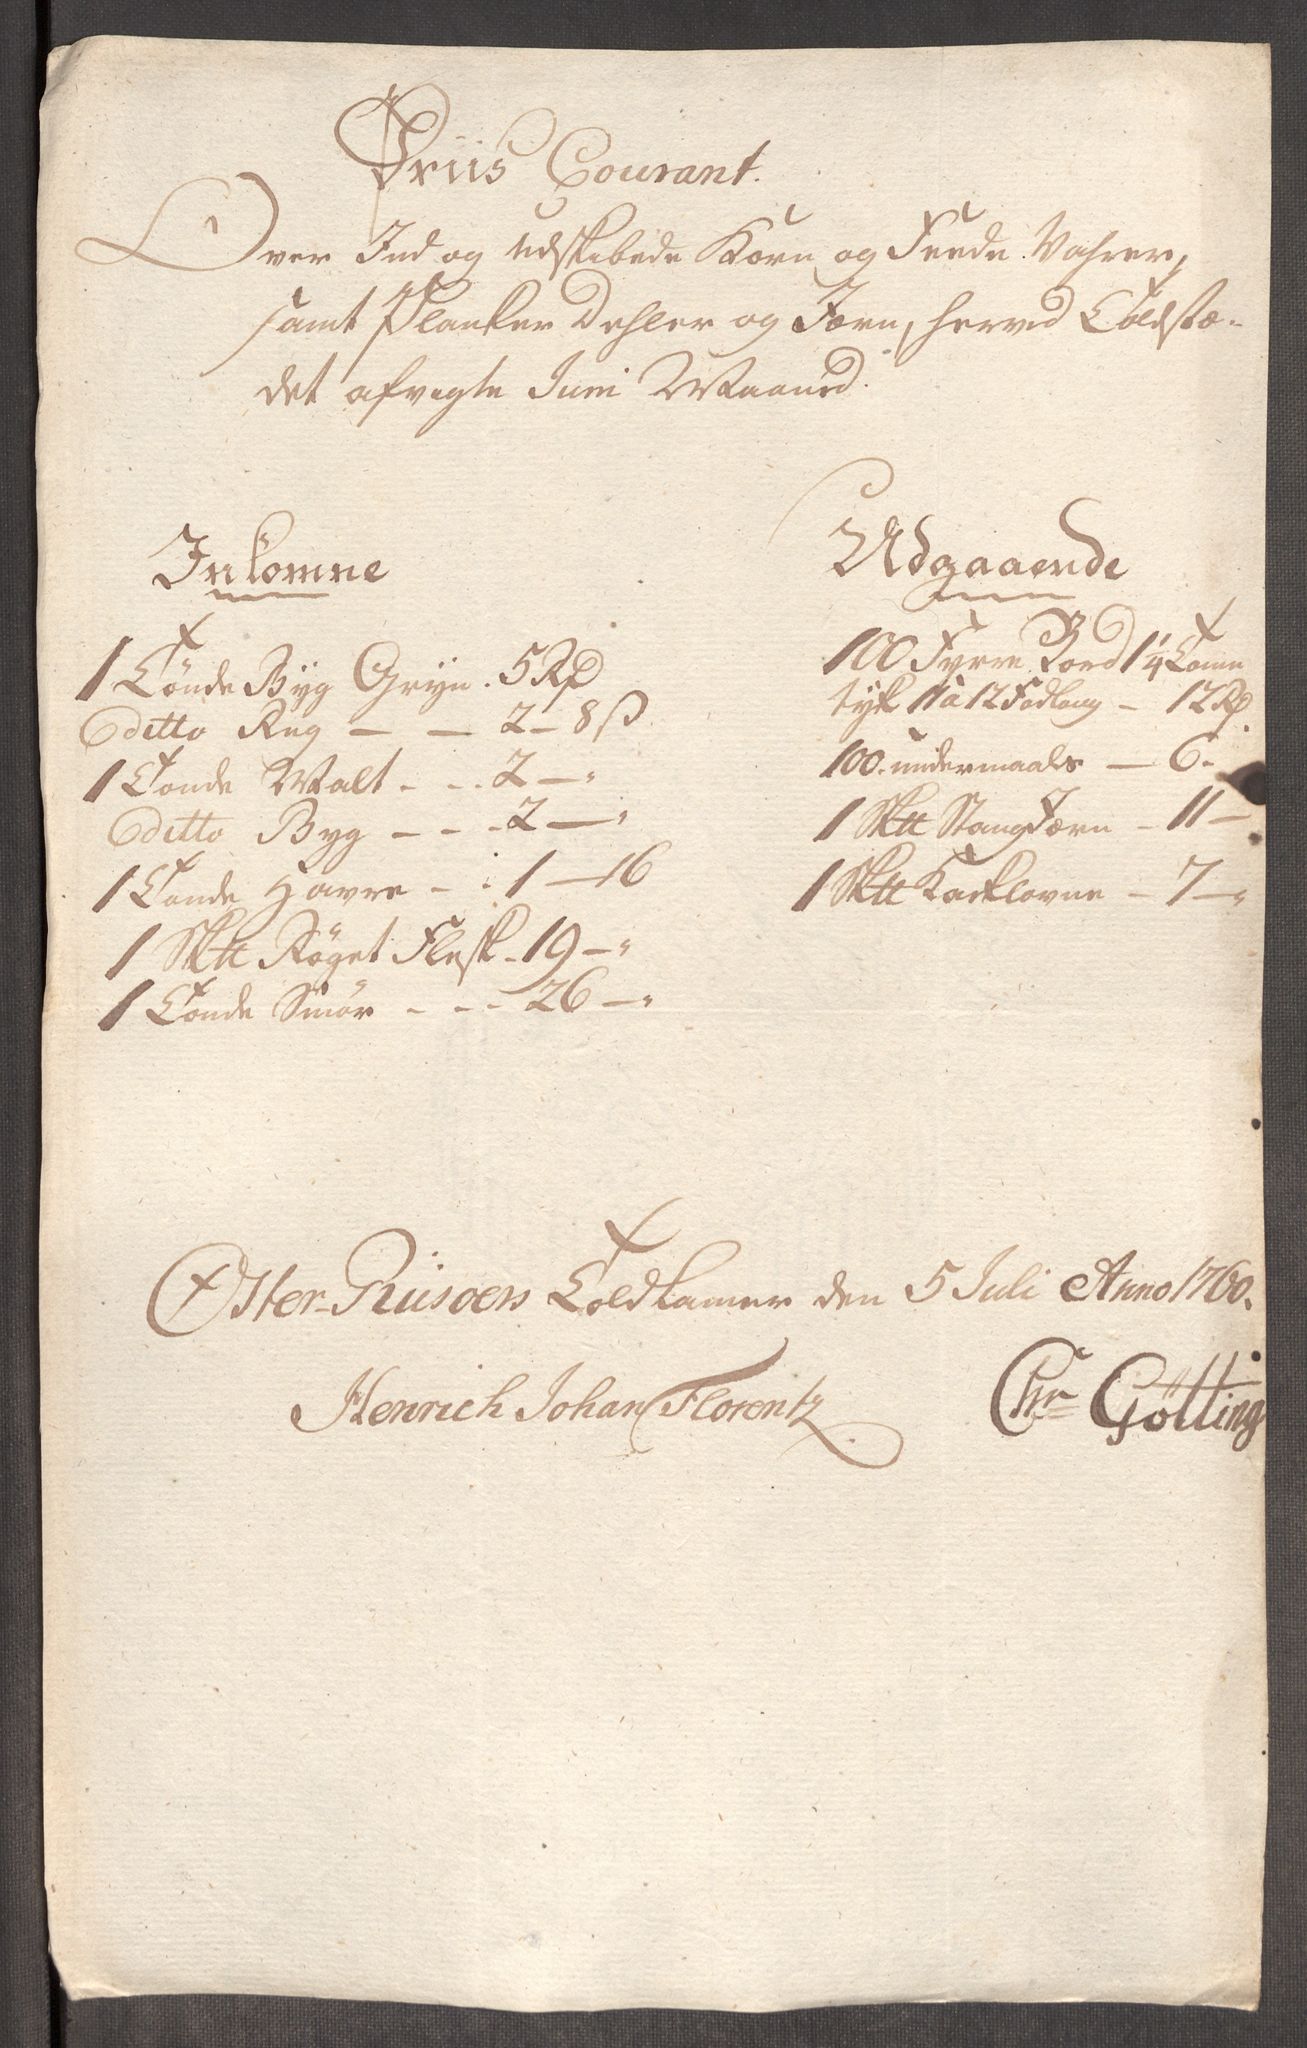 Priis Courant.
Over Ind og udskibede Korn og Feede Vahrer,
samt Planker Dehler og Jærn, herved Toldstæ-
det afvigte Juni Maaned.
Inkomne
1 Tønde Byg Gryn . 5 Rd
Ditto Rug — — 2 – 8 ß
1 Tønde Malt - - - 2 — "
Ditto Byg — - - 2 — "
1 Tønde Havre - - 1 — 16
1 Sktt Röget Flesk - 19 — "
1 Tønde Smör - - - 26 — "
Udgaaende
100 Fyrre Bord 1 1/4 Tomm
tyk 11 a 12 Fod lang – 12 Rd
100 undermaals — 6 -
1 Sktt Stang Jærn – 11 —
1 Sktt Kackelovne – 7 — "
Oster-Riisoers Toldkamer den 5 Juli Anno 1760.
Henrich Johan Florentz
Chr Götting